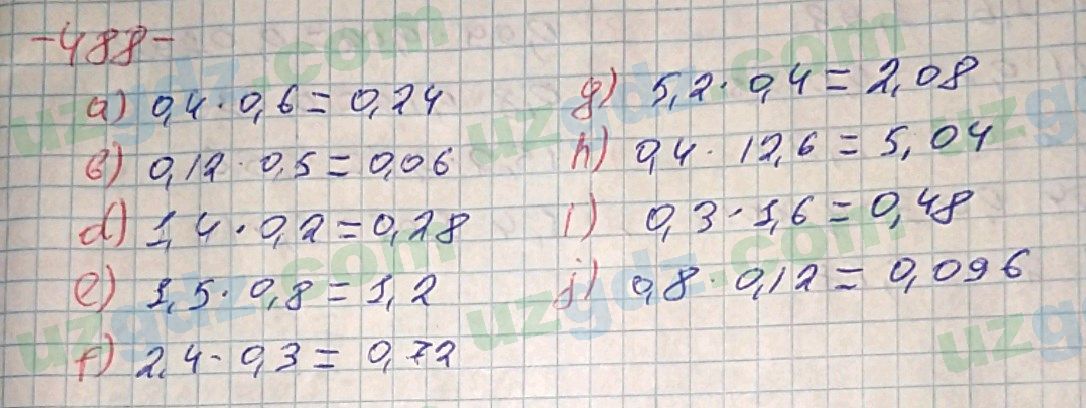 -488-
a) 0,4 · 0,6 = 0,24
b) 0,12 · 0,5 = 0,06
d) 1,4 · 0,2 = 0,28
e) 1,5 · 0,8 = 1,2
f) 2,4 · 0,3 = 0,72
g) 5,2 · 0,4 = 2,08
h) 0,4 · 12,6 = 5,04
i) 0,3 · 1,6 = 0,48
j) 0,8 · 0,12 = 0,096
uzgdz.com